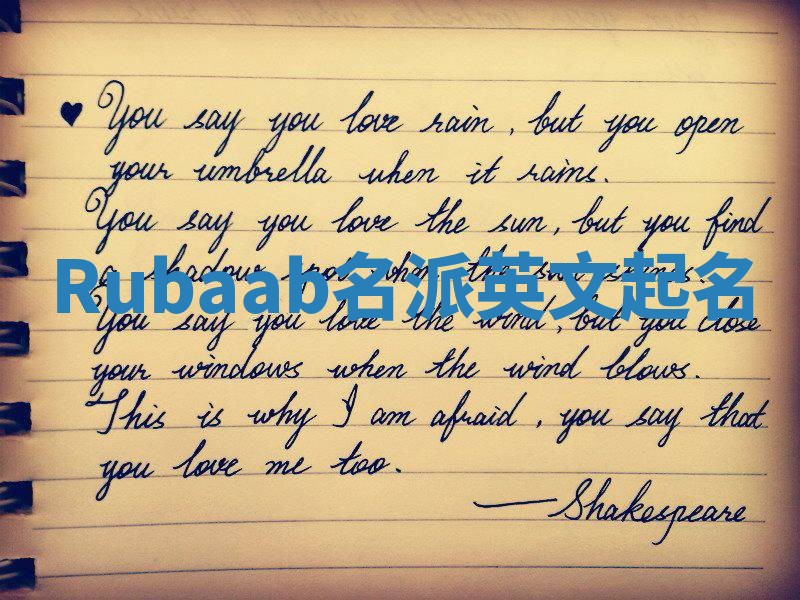 ♥ You say you love rain, but you open
your umbrella when it rains.
You say you love the sun, but you find
a shadow spot when the sun shines.
Rubaab名派英文起名
You say you love the wind, but you close
your windows when the wind blows.
This is why I am afraid, you say that
you love me too.
—Shakespeare